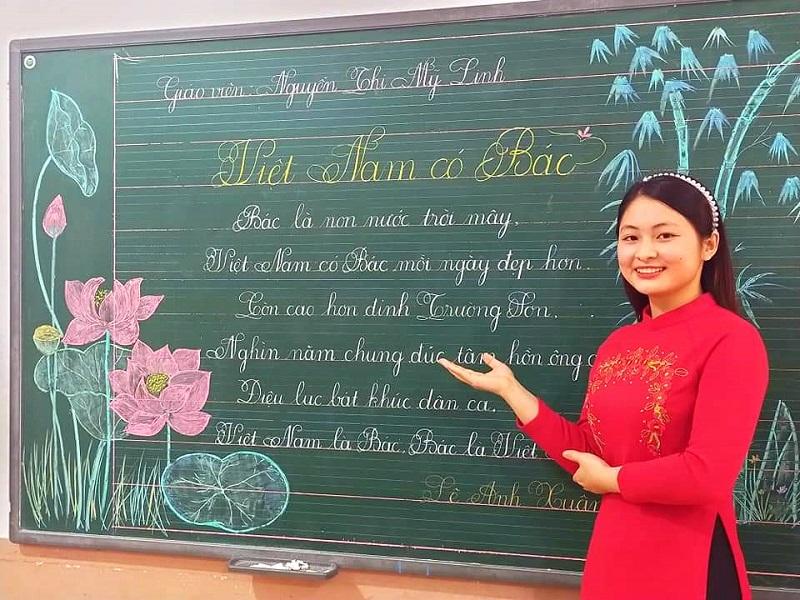 Giáo viên: Nguyễn Thị Mỹ Linh
Việt Nam có Bác
Bác là non nước trời mây,
Việt Nam có Bác mỗi ngày đẹp hơn.
Còn cao hơn đỉnh Trường Sơn.
Nghìn năm chung đúc tâm hồn ông
Điệu lục bát khúc dân ca.
Việt Nam là Bác, Bác là Việt
Lê Anh Xuân